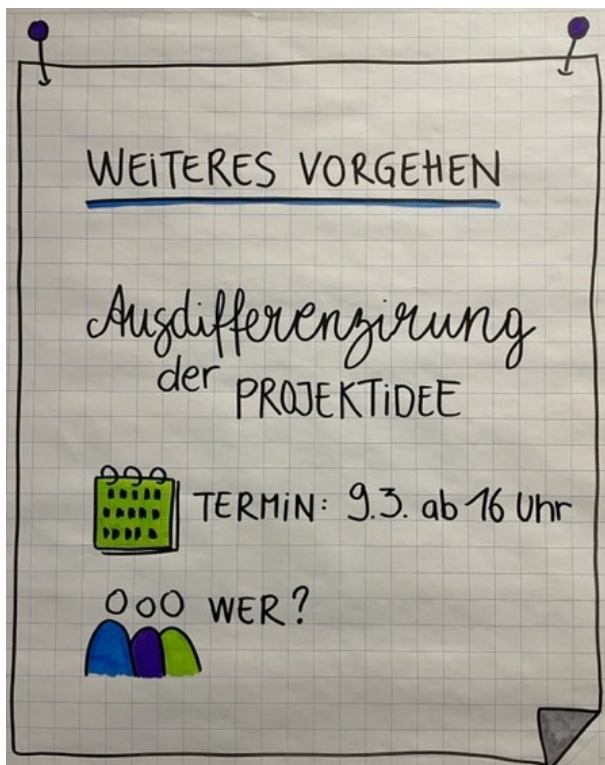 WEiTERES VORGEHEN
Ausdifferenzirung
der PROJEKTiDEE
TERMiN: 9.3. ab 16 Uhr
WER?